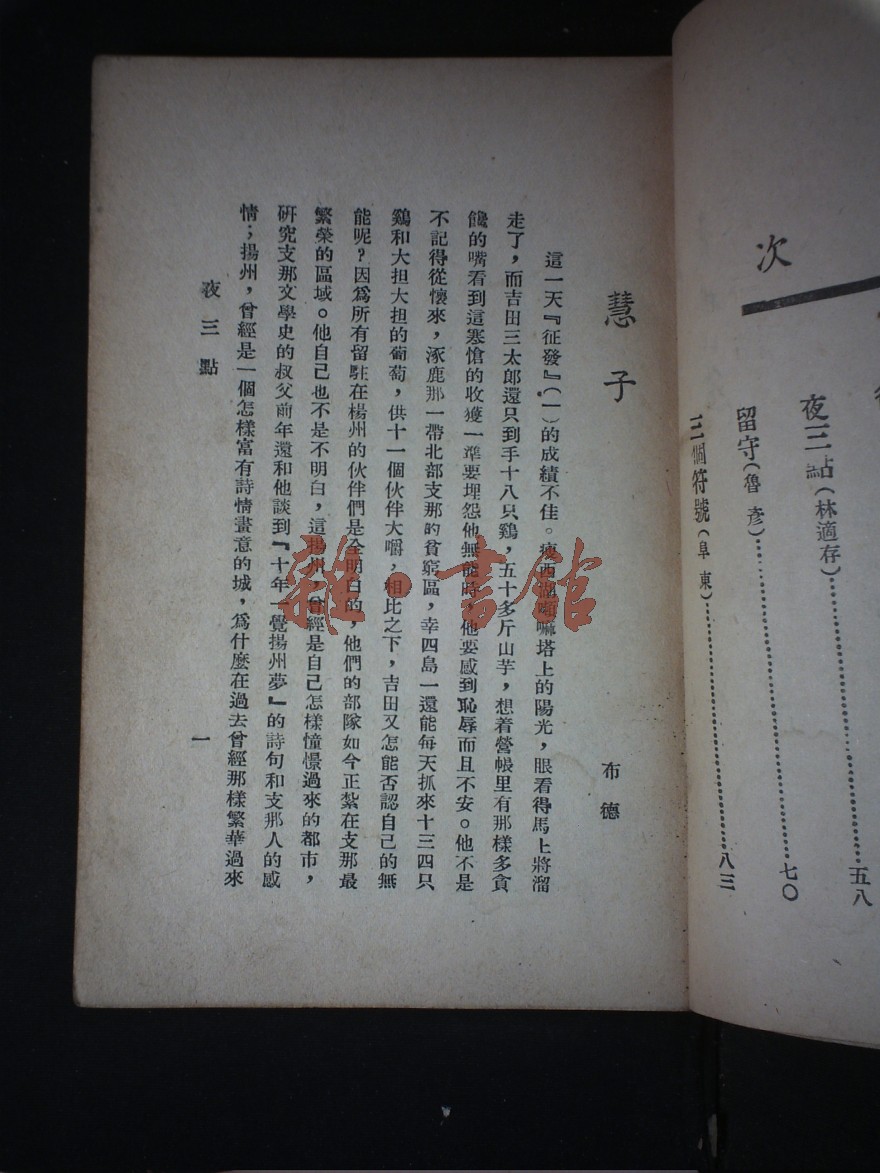 次
夜三點(林適存)……五八
留守(魯彥)……七〇
三個符號(阜東)……八三
慧子
布德
這一天『征發』(一)的成績不佳。瘦西湖喇嘛塔上的陽光,眼看得馬上將溜
走了,而吉田三太郎還只到手十八只鷄,五十多斤山芋,想着營帳里有那樣多貪
饞的嘴看到這寒愴的收獲一準要埋怨他無能時,他要感到恥辱而且不安。他不是
不記得從懷來,涿鹿那一帶北部支那的貧窮區,幸四島一還能每天抓來十三四只
鷄和大担大担的葡萄,供十一個伙伴大嚼,相比之下,吉田又怎能否認自己的無
能呢?因爲所有留駐在楊州的伙伴們是全明白的,他們的部隊如今正紮在支那最
繁榮的區域。他自己也不是不明白,這揚州,曾經是自己怎樣憧憬過來的都市,
研究支那文學史的叔父前年還和他談到『十年一覺揚州夢』的詩句和支那人的感
情;揚州,曾經是一個怎樣富有詩情畫意的城,爲什麼在過去曾經那樣繁華過來
夜三點
一
雜·書館